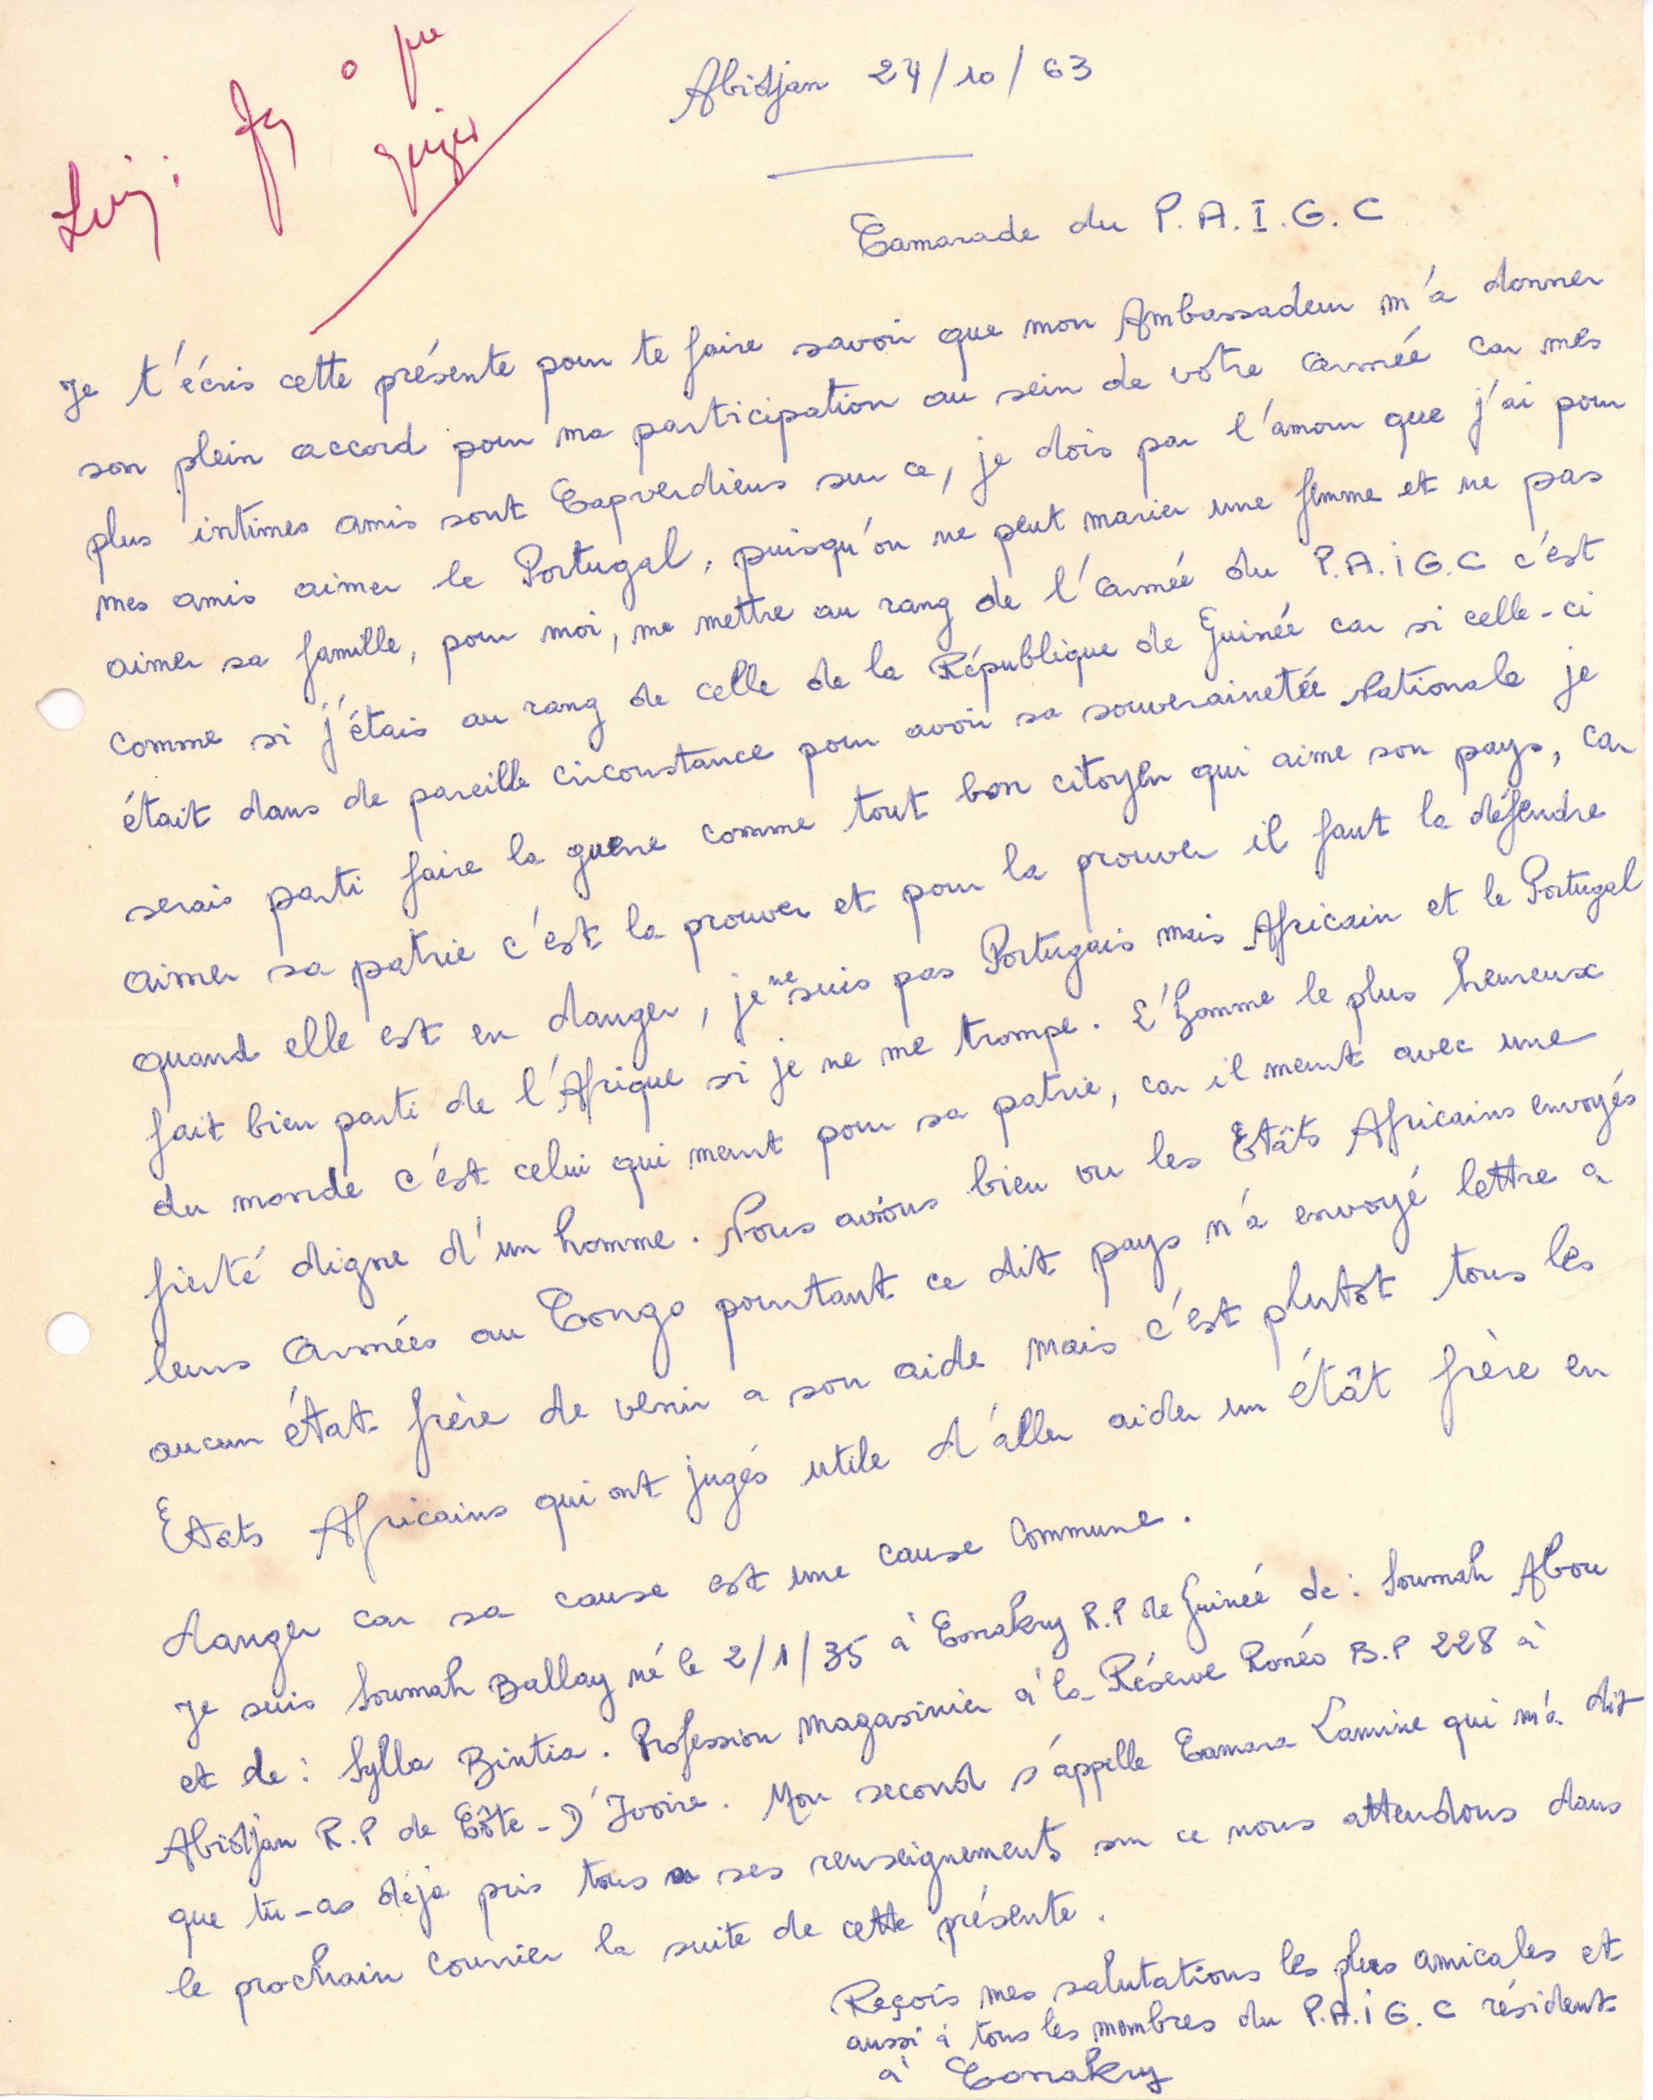 Abidjan 24/10/63
Camarade du P.A.I.G.C
Je t'écris cette présente pour te faire savoir que mon Ambassadeur m'a donner
son plein accord pour ma participation au sein de votre armée car mes
plus intimes amis sont Capverdiens sur ce, je dois par l'amour que j'ai pour
mes amis aimer le Portugal, puisqu'on ne peut marier une femme et ne pas
aimer sa famille, pour moi, me mettre au rang de l'armée du P.A.I.G.C c'est
comme si j'étais au rang de celle de la République de Guinée car si celle-ci
était dans de pareille circonstance pour avoir sa souverainetée Nationale je
serais parti faire la guerre comme tout bon citoyen qui aime son pays, car
aimer sa patrie c'est la prouver et pour la prouver il faut la défendre
quand elle est en danger, je ne suis pas Portugais mais Africain et le Portugal
fait bien parti de l'Afrique si je ne me trompe. L'homme le plus heureux
du monde c'est celui qui meurt pour sa patrie, car il meurt avec une
fierté digne d'un homme. Nous avions bien vu les Etâts Africains envoyés
leurs armées au Congo pourtant ce dit pays n'a envoyé lettre a
aucun état frère de venir a son aide mais c'est plutôt tous les
Etats Africains qui ont jugés utile d'aller aider un étât frère en
danger car sa cause est une cause commune.
Je suis Soumah Ballay né le 2/1/35 à Conakry R.P de Guinée de: Soumah Abou
et de: Sylla Bintia. Profession magasinier à la Réserve Ronéo B.P 228 à
Abidjan R.P de Côte-D'Ivoire. Mon second s'appelle Camara Lamine qui m'a dit
que tu-as déjà pris tous ses renseignements sur ce nous attendons dans
le prochain courrier la suite de cette présente.
Reçois mes salutations les plus amicales et
aussi à tous les membres du P.A.I.G.C résident
à Conakry